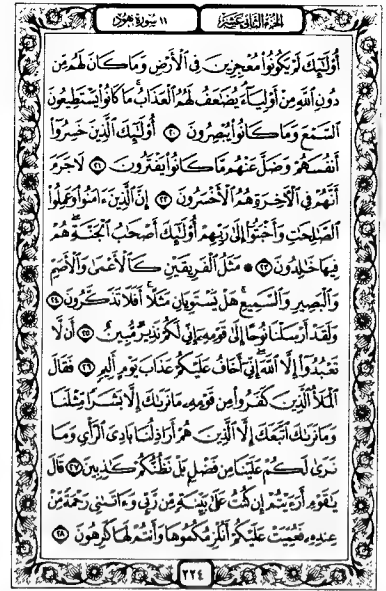 ١١ سورة هود
الجزء الثاني عشر
أُوْلَٰٓئِكَ لَمْ يَكُونُواْ مُعْجِزِينَ فِى ٱلْأَرْضِ وَمَا كَانَ لَهُم مِّن
دُونِ ٱللَّهِ مِنْ أَوْلِيَآءَ يُضَٰعَفُ لَهُمُ ٱلْعَذَابُ مَا كَانُواْ يَسْتَطِيعُونَ
ٱلسَّمْعَ وَمَا كَانُواْ يُبْصِرُونَ ٢٠ أُوْلَٰٓئِكَ ٱلَّذِينَ خَسِرُوٓاْ
أَنفُسَهُمْ وَضَلَّ عَنْهُم مَّا كَانُواْ يَفْتَرُونَ ٢١ لَا جَرَمَ
أَنَّهُمْ فِى ٱلْأَخِرَةِ هُمُ ٱلْأَخْسَرُونَ ٢٢ إِنَّ ٱلَّذِينَ ءَامَنُواْ وَعَمِلُواْ
ٱلصَّٰلِحَٰتِ وَأَخْبَتُوٓاْ إِلَىٰ رَبِّهِمْ أُوْلَٰٓئِكَ أَصْحَٰبُ ٱلْجَنَّةِ هُمْ
فِيهَا خَٰلِدُونَ ٢٣ مَثَلُ ٱلْفَرِيقَيْنِ كَٱلْأَعْمَىٰ وَٱلْأَصَمِّ
وَٱلْبَصِيرِ وَٱلسَّمِيعِ هَلْ يَسْتَوِيَانِ مَثَلًا أَفَلَا تَذَكَّرُونَ ٢٤
وَلَقَدْ أَرْسَلْنَا نُوحًا إِلَىٰ قَوْمِهِۦٓ إِنِّى لَكُمْ نَذِيرٌ مُّبِينٌ ٢٥ أَن لَّا
تَعْبُدُوٓاْ إِلَّا ٱللَّهَ إِنِّىٓ أَخَافُ عَلَيْكُمْ عَذَابَ يَوْمٍ أَلِيمٍ ٢٦ فَقَالَ
ٱلْمَلَأُ ٱلَّذِينَ كَفَرُواْ مِن قَوْمِهِۦ مَا نَرَىٰكَ إِلَّا بَشَرًا مِّثْلَنَا
وَمَا نَرَىٰكَ ٱتَّبَعَكَ إِلَّا ٱلَّذِينَ هُمْ أَرَاذِلُنَا بَادِىَ ٱلرَّأْىِ وَمَا
نَرَىٰ لَكُمْ عَلَيْنَا مِن فَضْلٍۭ بَلْ نَظُنُّكُمْ كَٰذِبِينَ ٢٧ قَالَ
يَٰقَوْمِ أَرَءَيْتُمْ إِن كُنتُ عَلَىٰ بَيِّنَةٍ مِّن رَّبِّى وَءَاتَىٰنِى رَحْمَةً مِّنْ
عِندِهِۦ فَعُمِّيَتْ عَلَيْكُمْ أَنُلْزِمُكُمُوهَا وَأَنتُمْ لَهَا كَٰرِهُونَ ٢٨
٢٢٤